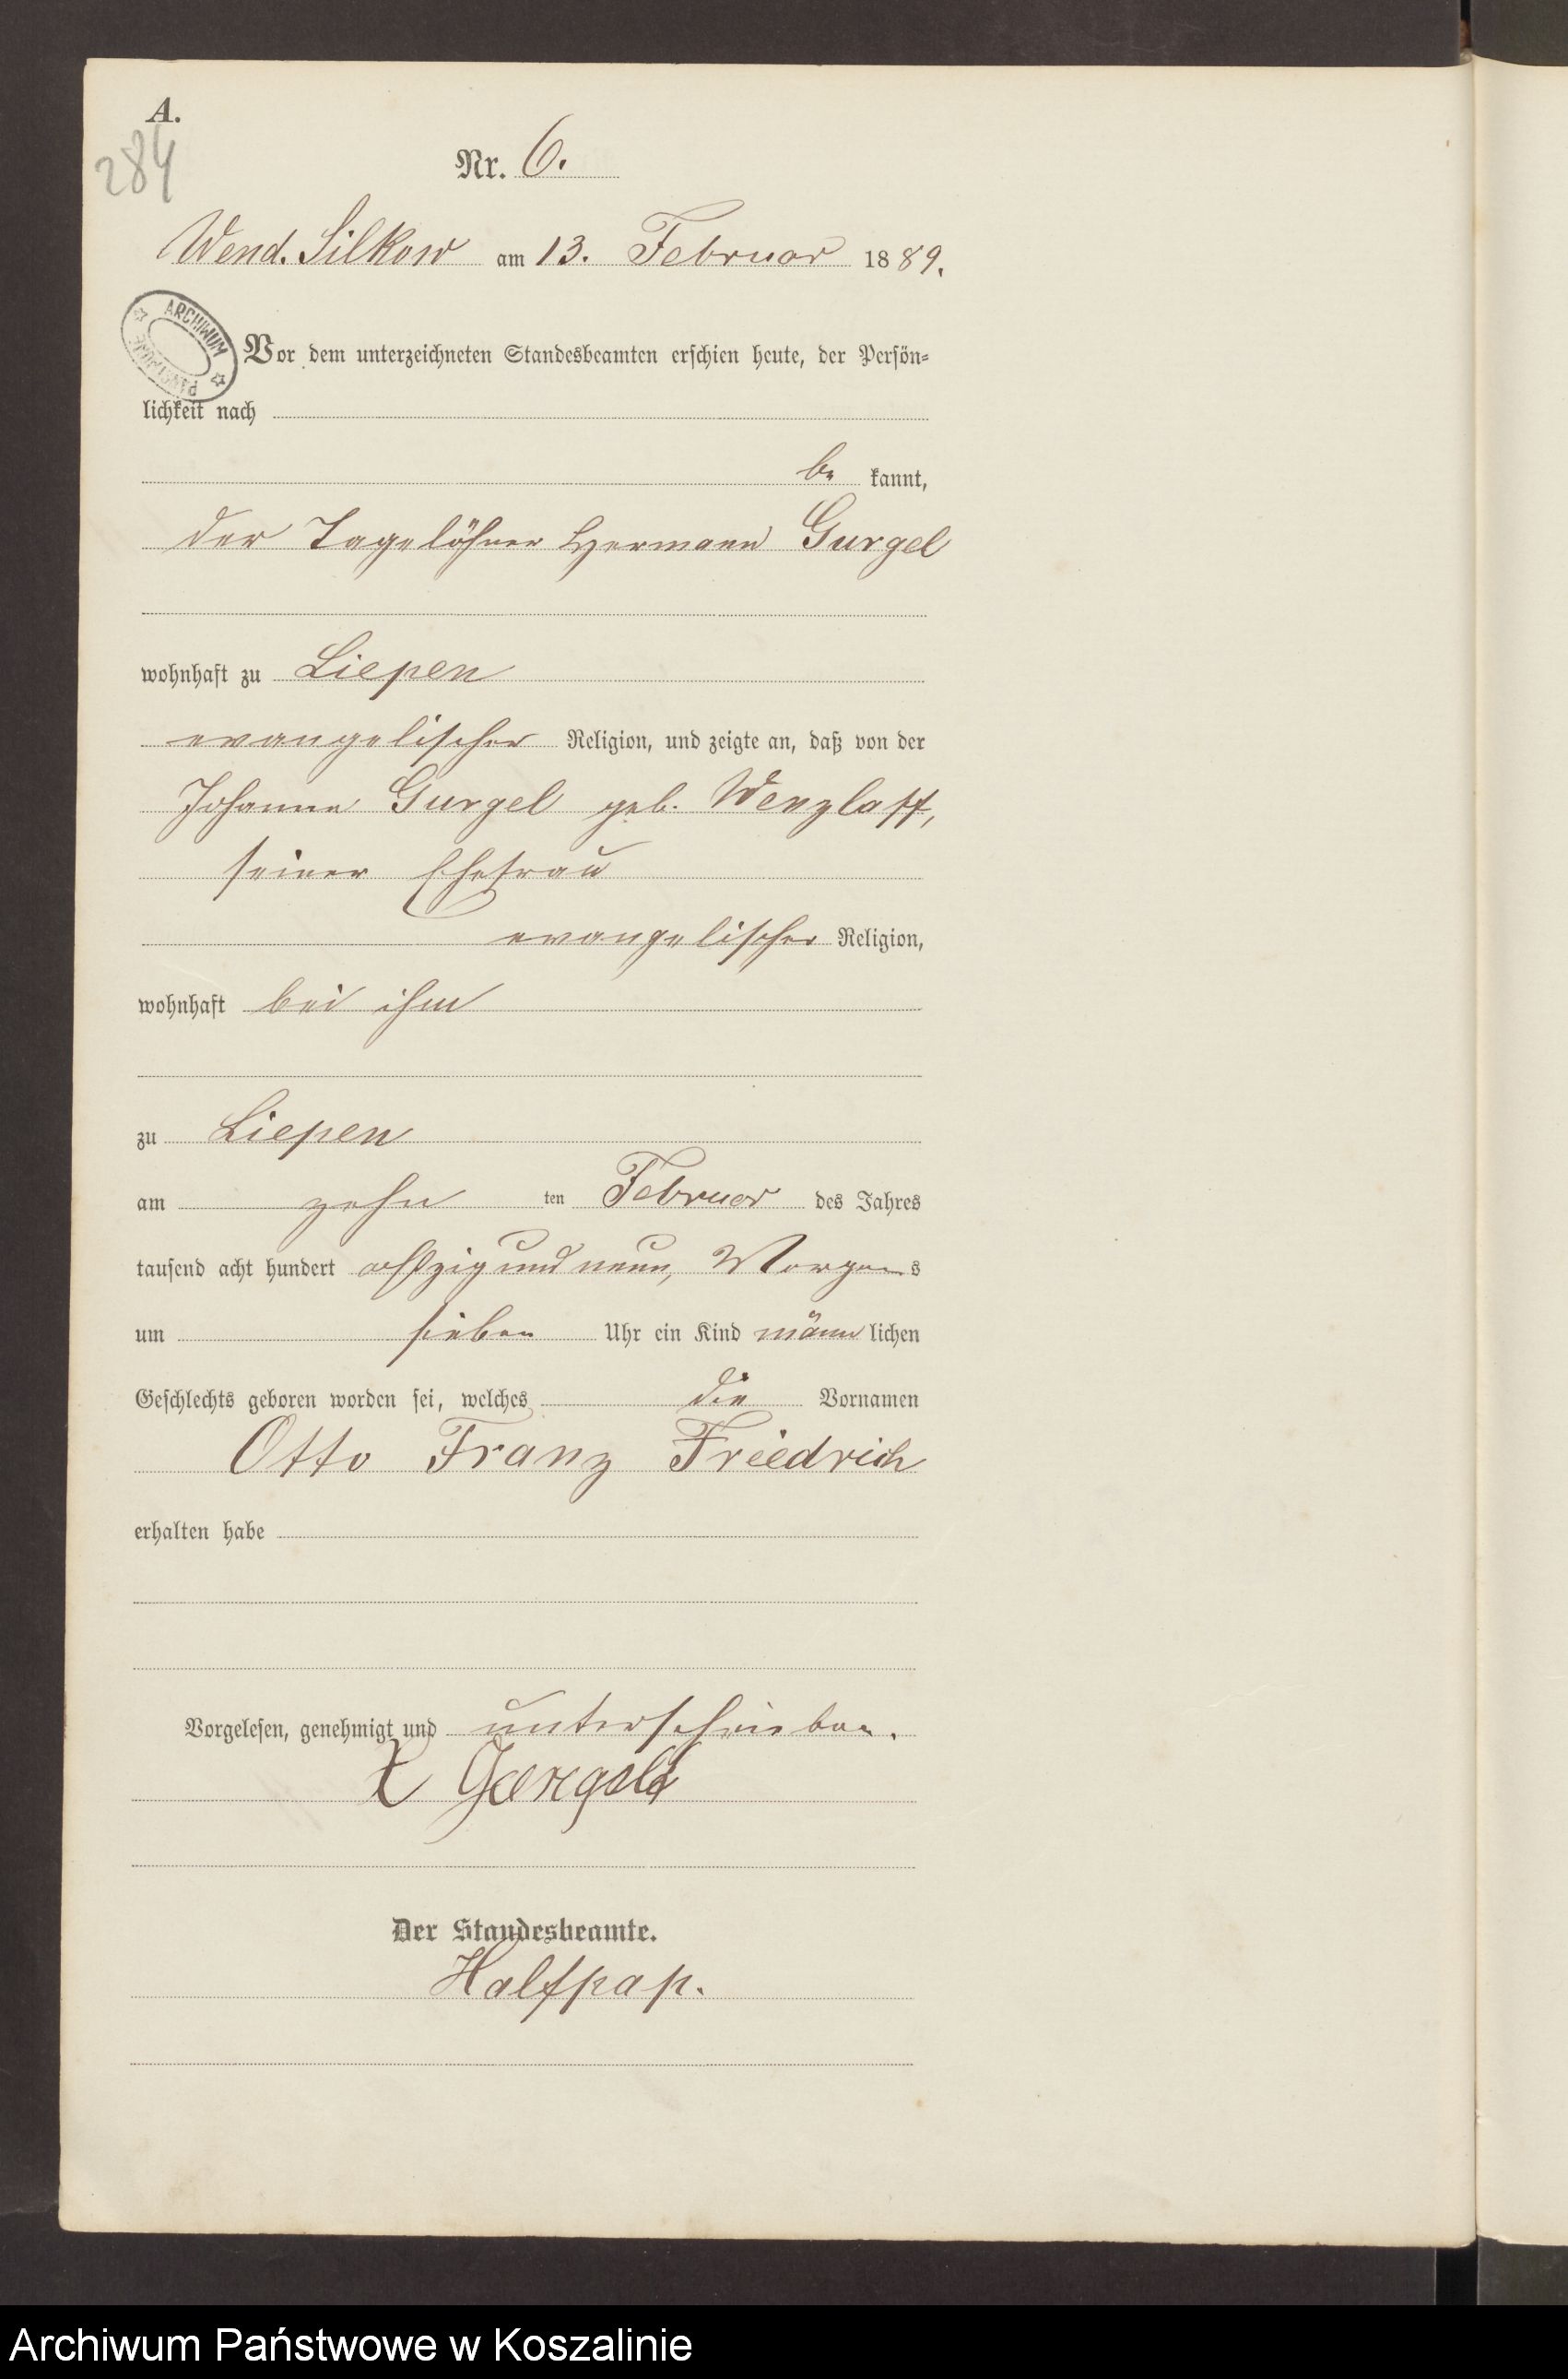 A.
284
Nr. 6.
Wend. Silkow am 13. Februar 1889.
ARCHIWUM PAŃSTWOWE
Vor dem unterzeichneten Standesbeamten erschien heute, der Persön-
lichkeit nach
be kannt,
der Tagelöhner Hermann Gurgel
wohnhaft zu Liepen
evangelischer Religion, und zeigte an, daß von der
Johanne Gurgel geb. Wenzlaff,
seiner Ehefrau
evangelischer Religion,
wohnhaft bei ihm
zu Liepen
am zehn ten Februar des Jahres
tausend acht hundert achtzig und neun, Morgens
um sieben Uhr ein Kind männlichen
Geschlechts geboren worden sei, welches die Vornamen
Otto Franz Friedrich
erhalten habe
Vorgelesen, genehmigt und unterschrieben.
Der Standesbeamte.
Halfpap.
Archiwum Państwowe w Koszalinie